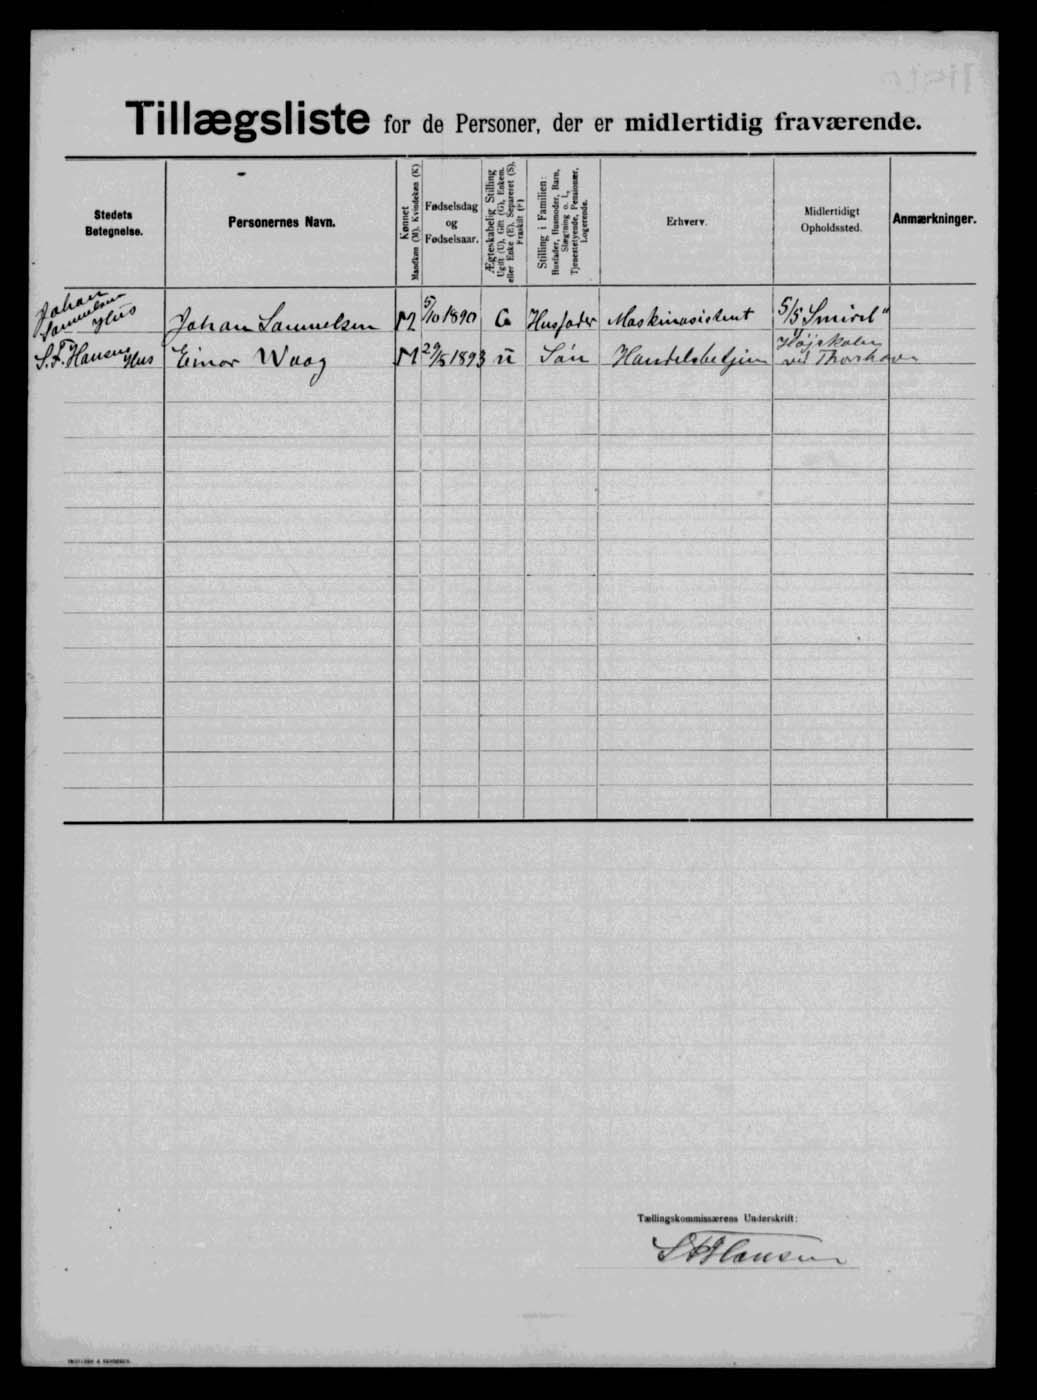 Tillægsliste for de Personer, der er midlertidig fraværende.
Stedets Betegnelse.
Personernes Navn.
Kønnet
Mandkøn (M). Kvindekøn (K)
Fødselsdag
og
Fødselsaar.
Ægteskabelig Stilling
Ugift (U), Gift (G), Enkem.
eller Enke (E), Separeret (S),
Fraskilt (F)
Stilling i Familien:
Husfader, Husmoder, Barn,
Slægtning o. l.,
Tjenestetyende, Pensionær,
Logerende.
Erhverv.
Midlertidigt
Opholdssted.
Anmærkninger.
Johan Samuelsens Hus
Johan Samuelsen M 5/10 1890 G Husfader Maskinasistent S/S Smiril"
S. F. Hansens Hus Einar Waag M 29/5 1893 U Søn Handelsbetjen Højskolen ved Thorshavn
Tællingskommissærens Underskrift:
S F Hansen